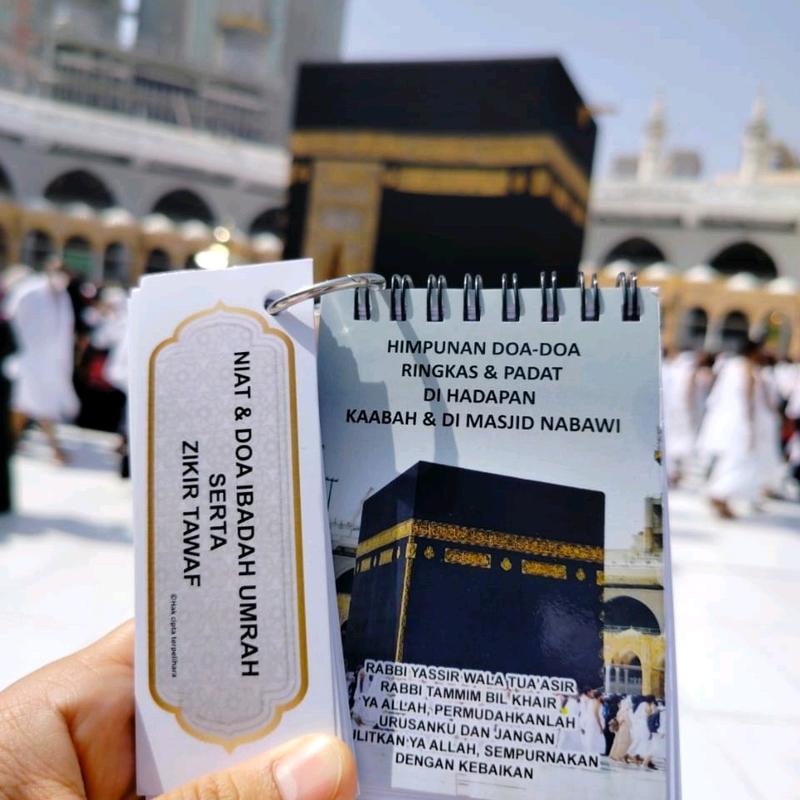 NIAT & DOA IBADAH UMRAH
SERTA
ZIKIR TAWAF
©Hak cipta terpelihara
HIMPUNAN DOA-DOA
RINGKAS & PADAT
DI HADAPAN
KAABAH & DI MASJID NABAWI
RABBI YASSIR WALA TUA'ASIR
RABBI TAMMIM BIL KHAIR
YA ALLAH, PERMUDAHKANLAH
URUSANKU DAN JANGAN
ILITKAN YA ALLAH, SEMPURNAKAN
DENGAN KEBAIKAN